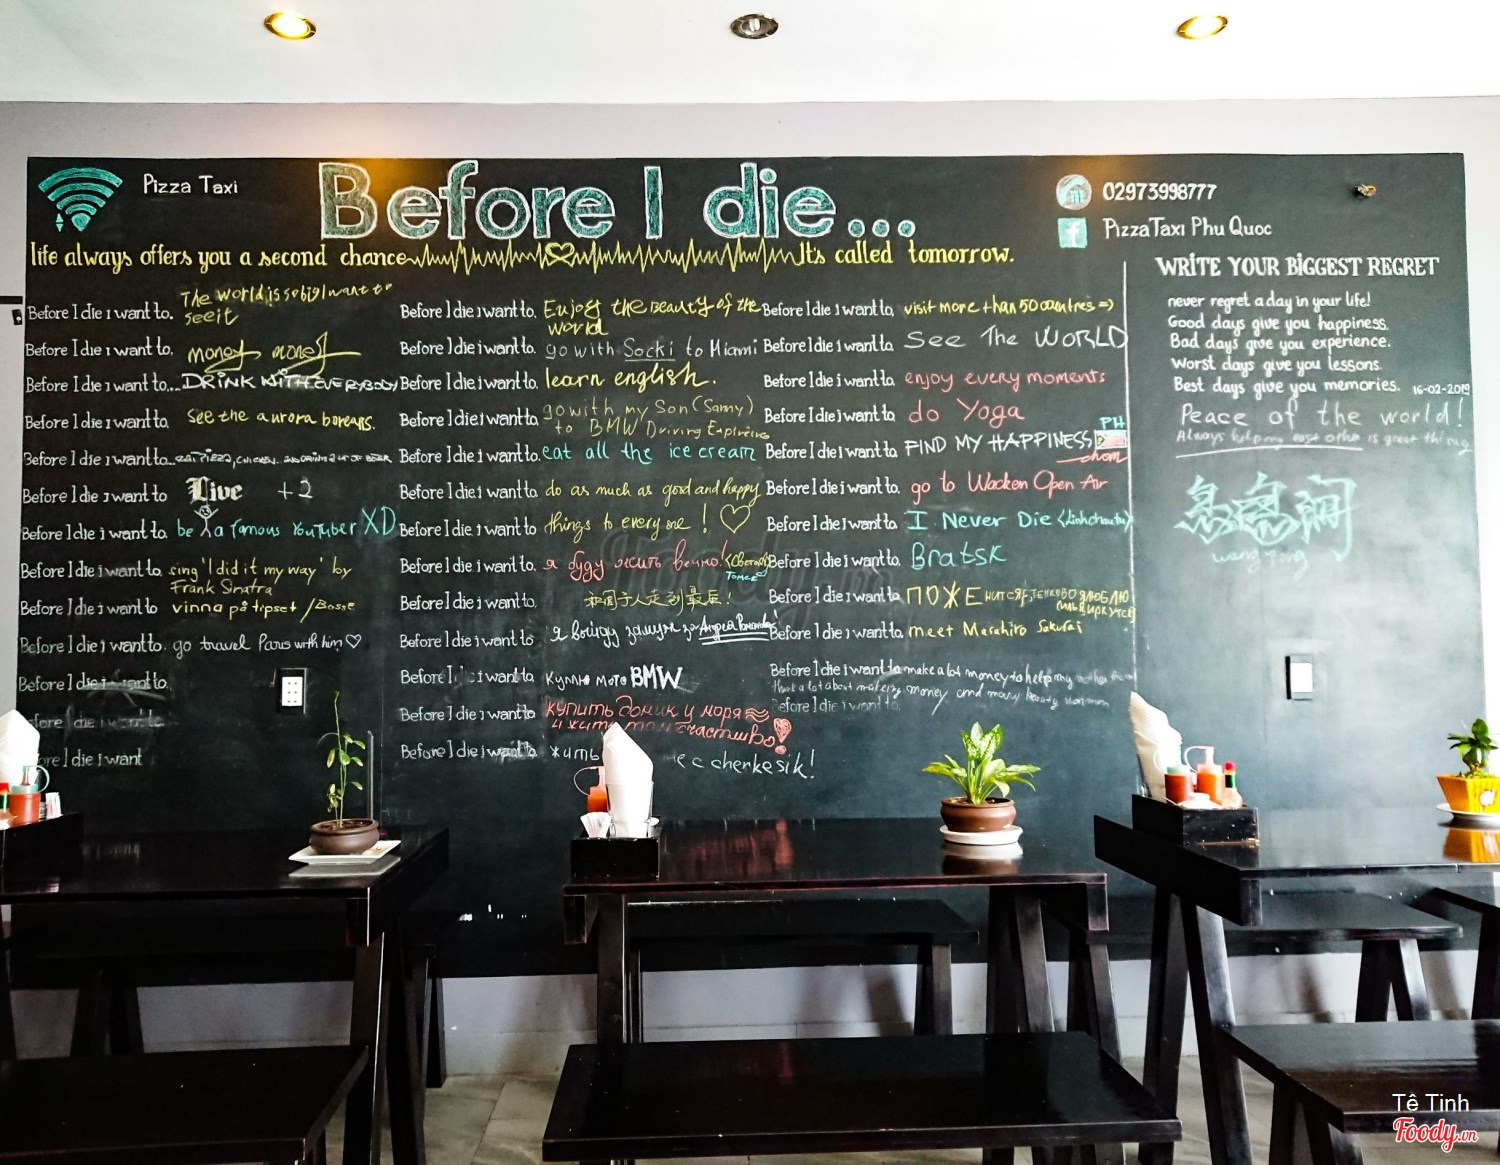 Pizza Taxi
Before I die...
02973998777
PizzaTaxi Phu Quoc
life always offers you a second chance
It's called tomorrow.
Before I die I want to. The world is so big I want to
see it
Before I die I want to. money money
Before I die I want to... DRINK WITH EVERYBODY
Before I die I want to. See the aurora boreans.
Before I die I want to... EAT PIZZA, CHICKEN
Before I die I want to Live +2
Before I die I want to. be a famous YouTuber XD
Before I die I want to. sing 'I did it my way' by
Frank Sinatra
Before I die I want to vinna på tipset / Bosse
Before I die I want to. go travel Paris with him♡
Before I die I want to.
Before I die I want to.
Before I die I want
Before I die I want to. Enjoy the Beauty of the
world
Before I die I want to. go with Socki to Miami
Before I die I want to. learn english.
Before I die I want to. go with my Son (Sammy)
to BMW Driving
Before I die I want to. eat all the ice cream
Before I die I want to. do as much as good and happy
Before I die I want to. things to everyone! ♡
Before I die I want to. я буду жить вечно!
Before I die I want to.
Before I die I want to. я выйду замуж за
Before I die I want to куплю мото BMW
Before I die I want to купить домик у моря
и жить там счастливо!
Before I die I want to жить
с cherkesik!
Before I die I want to. visit more than 50 countries =>
Before I die I want to. See The WORLD
Before I die I want to. enjoy every moments
Before I die I want to do Yoga
Before I die I want to. FIND MY HAPPINESS PH
Before I die I want to. go to Wacken Open Air
Before I die I want to. I Never Die
Before I die I want to. Bratsk
Before I die I want to.
Before I die I want to. meet Masahiro Sakurai
Before I die I want to make a lot money to help my
think a lot about making money and
Before I die I want to.
WRITE YOUR BIGGEST REGRET
never regret a day in your life!
Good days give you happiness.
Bad days give you experience.
Worst days give you lessons.
Best days give you memories. 16-02-2019
Peace of the world!
Always helping each other is great thing
Tê Tinh
Foody.vn